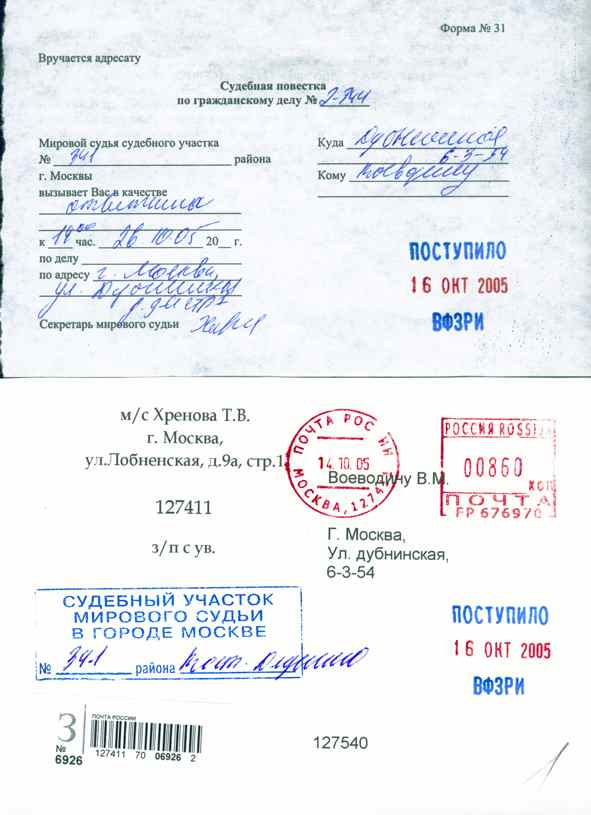 Форма № 31
Вручается адресату
Судебная повестка
по гражданскому делу № 2-344
Мировой судья судебного участка
№ 341 района
г. Москвы
вызывает Вас в качестве
ответчика
к 14 00 час. 26 10.05 20 г.
по делу
по адресу г. Москва,
ул.
Секретарь мирового судьи
Куда Дубнинская
6-3-54
Кому Воеводину
ПОСТУПИЛО
16 ОКТ 2005
ВФЗРИ
м/с Хренова Т.В.
г. Москва,
ул.Лобненская, д.9а, стр.1
127411
з/п с ув.
ПОЧТА РОССИИ
14.10.05
МОСКВА,127411
РОССИЯ ROSSIJA
00860
КОП
ПОЧТА
FP 676970
Воеводичу В.М.
Г. Москва,
Ул. дубнинская,
6-3-54
СУДЕБНЫЙ УЧАСТОК
МИРОВОГО СУДЬИ
В ГОРОДЕ МОСКВЕ
№ 341 района
ПОСТУПИЛО
16 ОКТ 2005
ВФЗРИ
З
№
6926
ПОЧТА РОССИИ
127411 70 06926 2
127540